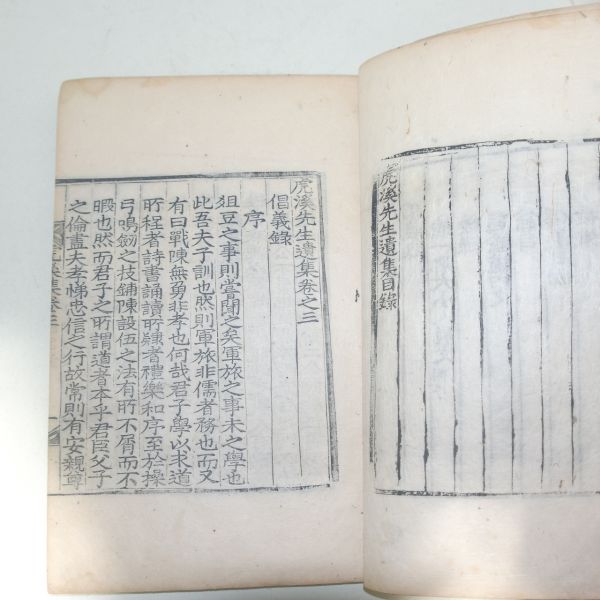 虎溪先生遺集目錄
虎溪先生遺集卷之三
倡義錄
序
俎豆之事則嘗聞之矣軍旅之事未之學也
此吾夫子訓也然則軍旅非儒者務也而又
有曰戰陳無勇非孝也何哉君子學以求道
所程者詩書誦讀所隸者禮樂和序至於操
弓鳴劒之技鋪陳設伍之法有所不屑而不
暇也然而君子之所謂道者本乎君臣父子
之倫盡夫孝悌忠信之行故常則有安親尊